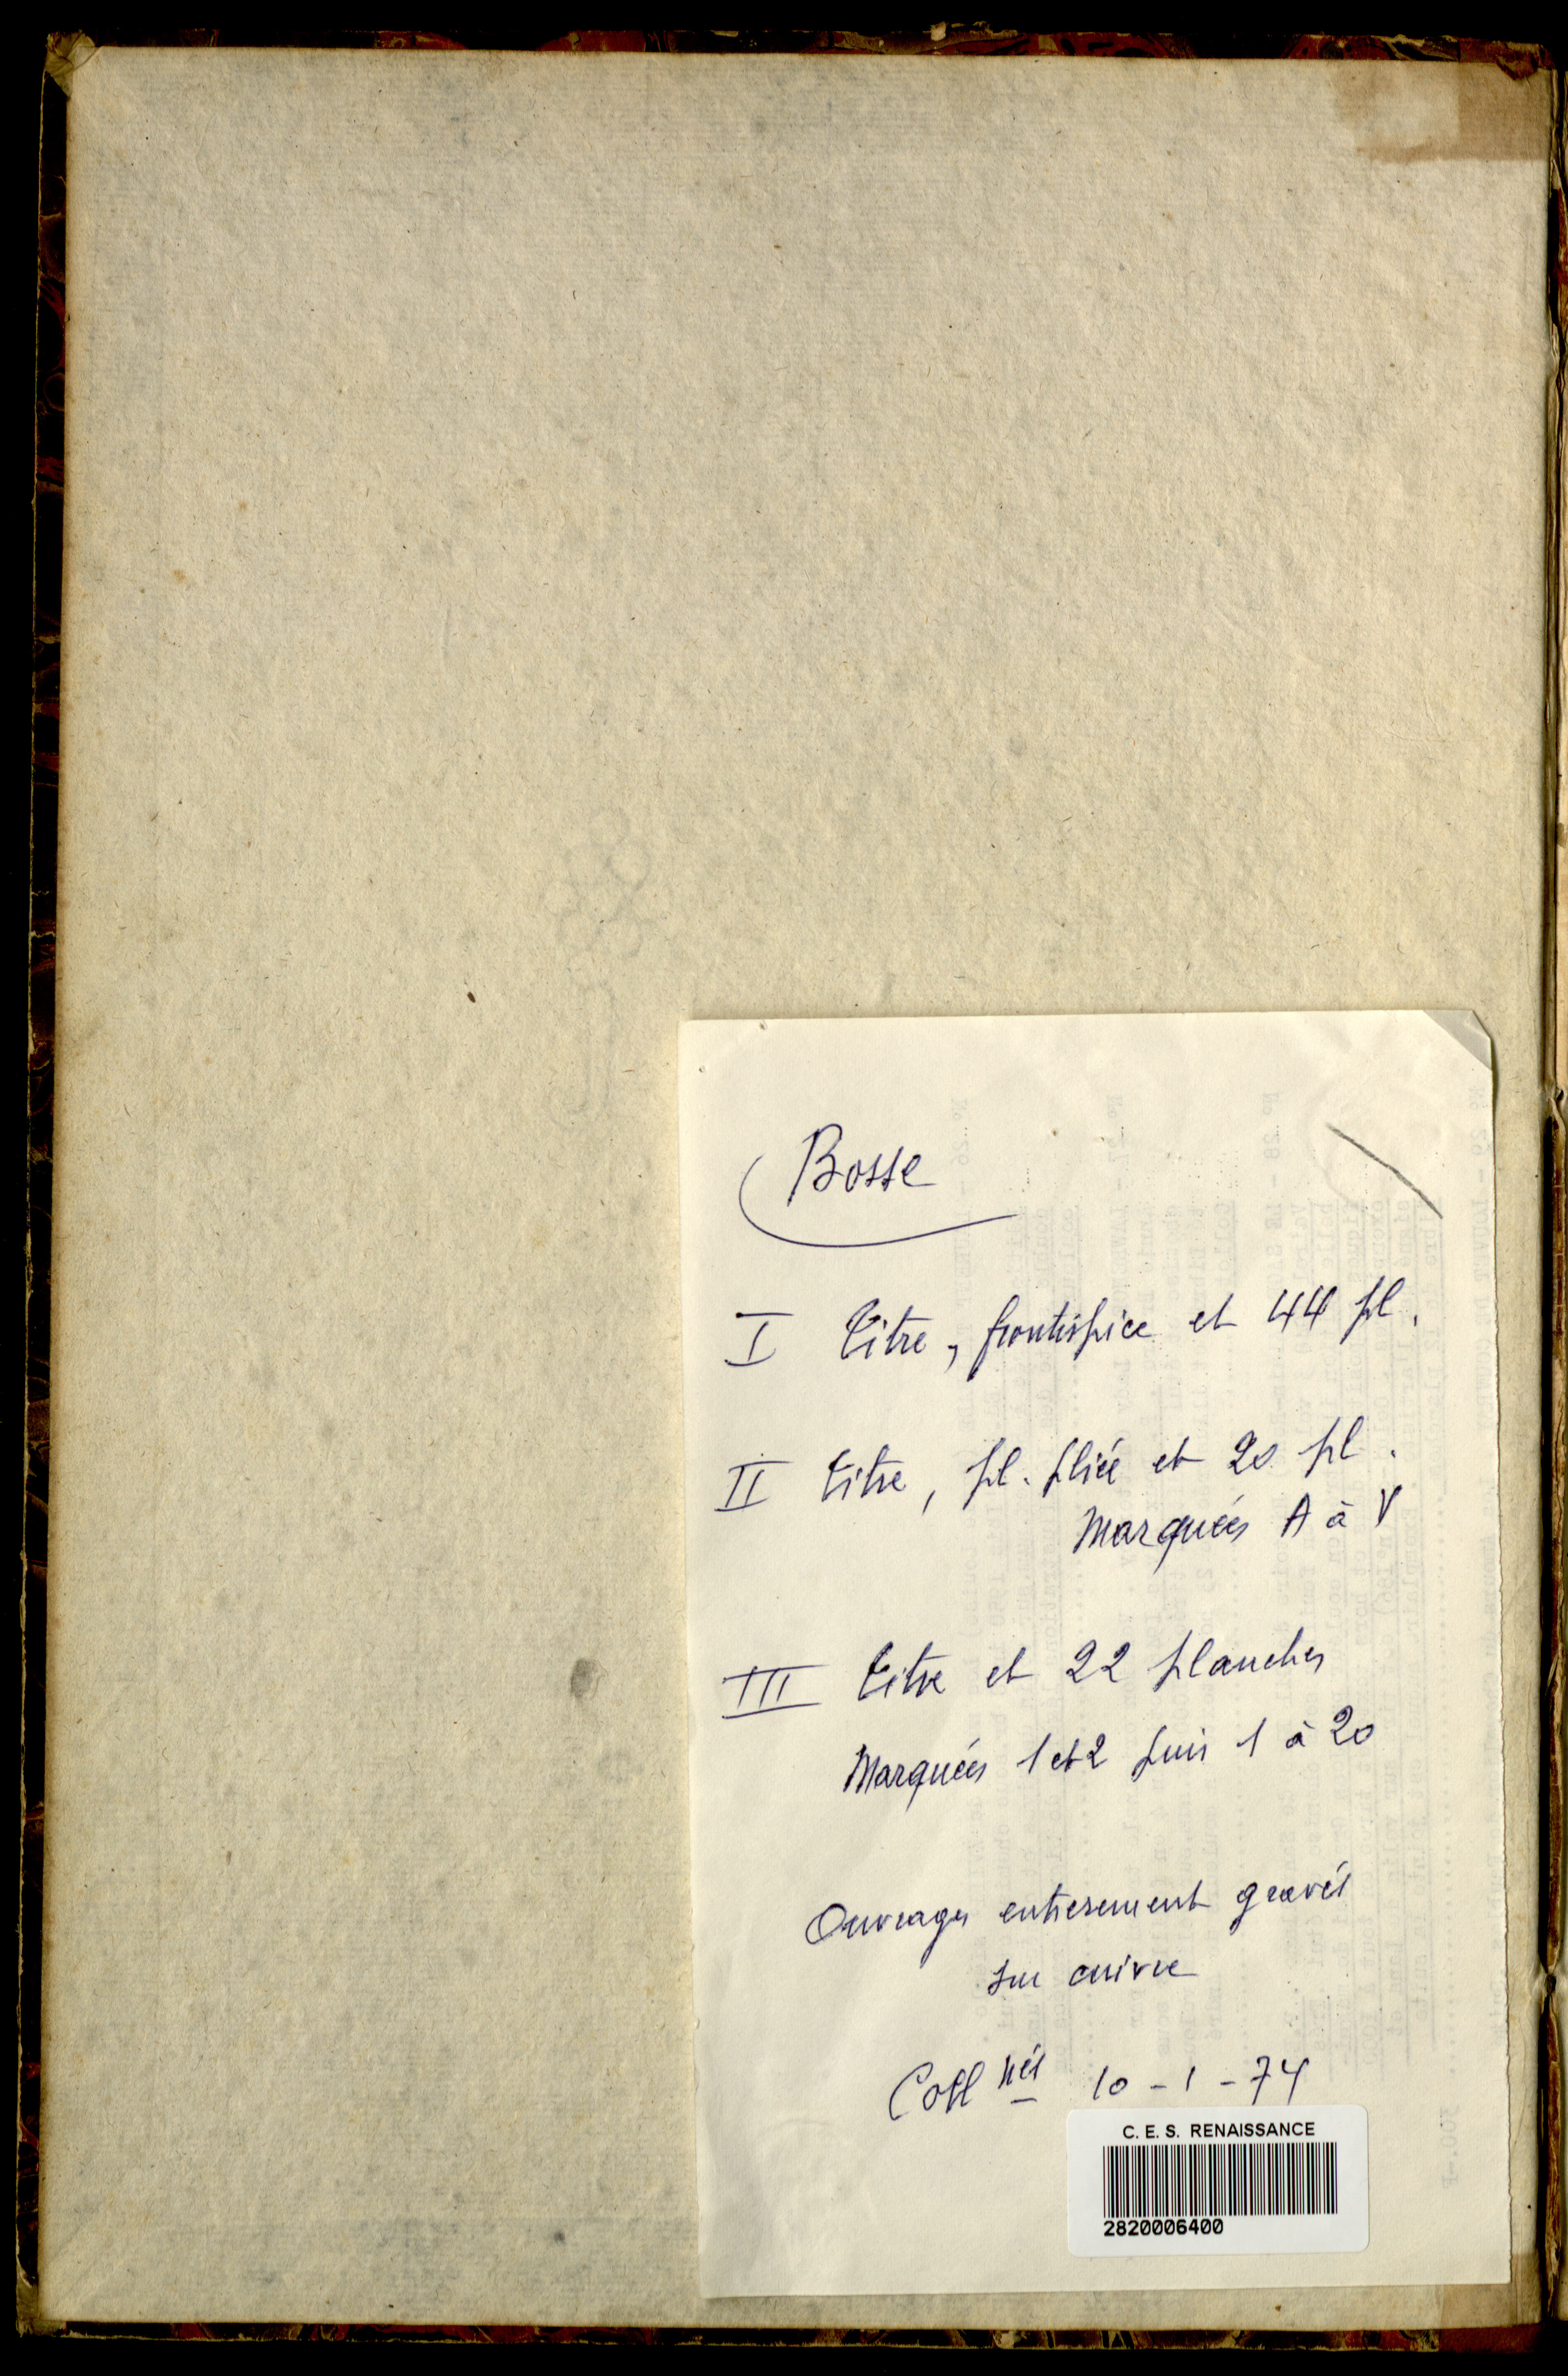 Bosse
I Titre, frontispice et 44 pl.
II titre, pl. pliée et 20 pl.
Marquées A à V
III titre et 22 planches
Marquées 1 et 2 puis 1 à 20
Ouvrages entièrement gravés
sur cuivre
Coll nés 10-1-74
C. E. S. RENAISSANCE
2820006400